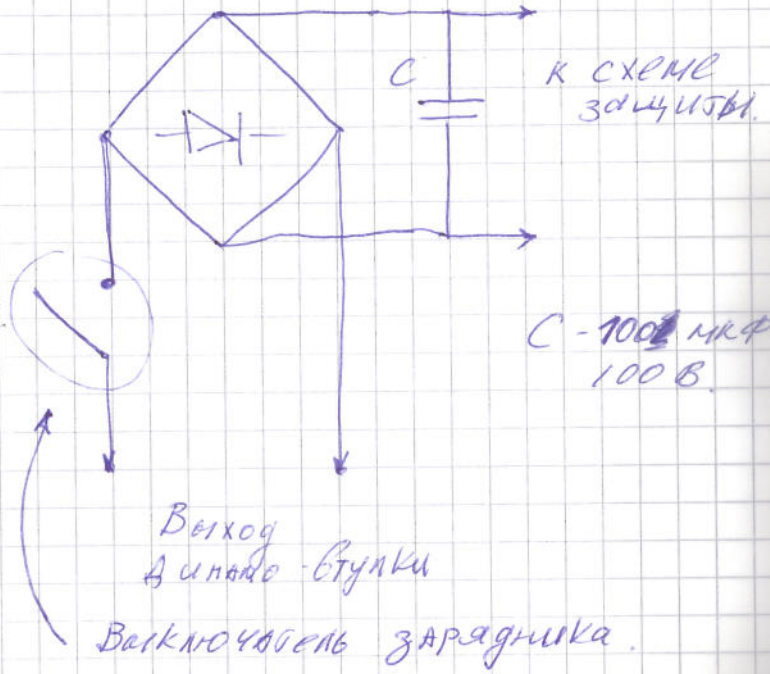 С
к схеме
защиты.
С - 100 мкФ
100 В.
Выход
динамо - втулки
Выключатель зарядника.